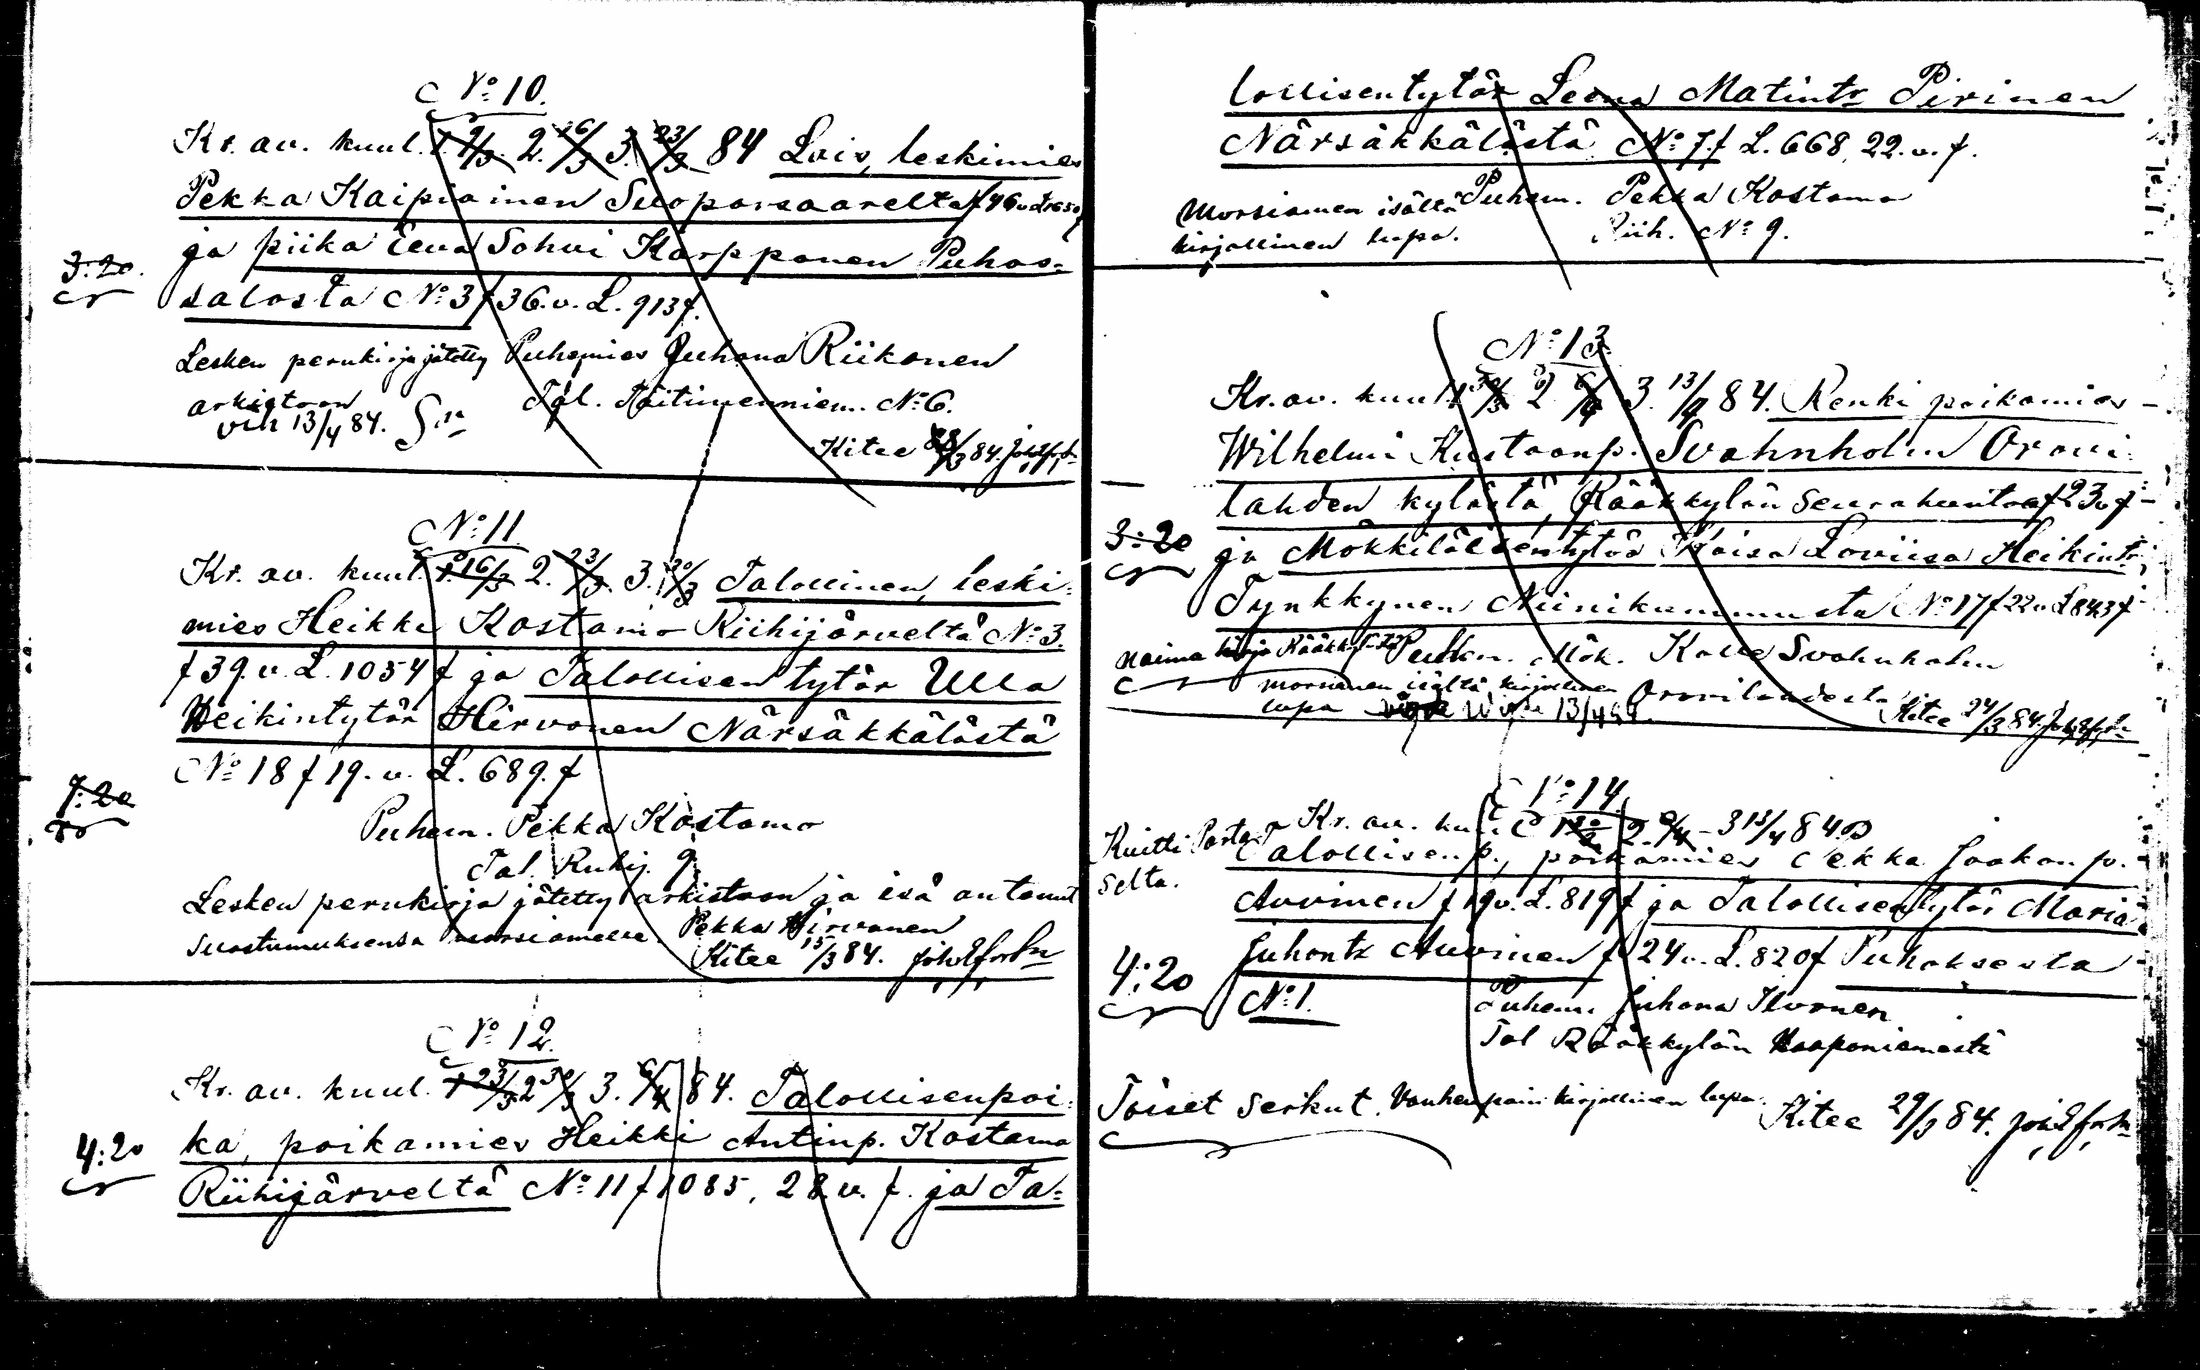 No 10.
Kr. av. kuul. 1. 9/3 2. 16/3 3. 23/3 84 Lois, leskimies
Pekka Kaipiainen Suoparsaarelta f 46 v L 1650 f
3:20. ja piika Eeva Sohvi Karppanen Puhos-
salosta No 3 f 36. v. L. 913 f.
Lesken perukirja jätetty Puhemies Juhana Riikonen
arkistoon Tal. Näitimenniem. No 6.
vih 13/4 84.
Kitee 84.
No 11.
Kr. av. kuul. 1. 16/3 2. 23/3 3. 30/3 Talollinen, leski-
mies Heikki Kostamo Riihijärveltä No 3.
f 39. v. L. 1054 f ja Talollisen tytär Ulla
Heikintytär Hirvonen Närsäkkälästä
No 18 f 19. v. L. 689. f
7:20
Puhem. Pekka Kostamo
Tal. Riihij. 9.
Lesken perukirja jätetty arkistoon ja isä antanut
suostumuksensa morsiamelle. Pekka Hirvonen
Kitee 15/3 84.
No 12.
Kr. av. kuul. 1 23/3 2 30/3 3. 6/4 84. Talollisenpoi-
4:20 ka, poikamies Heikki Antinp. Kostamo
Riihijärveltä No 11 f 1085, 28 v. f. ja Ta-
lollisentytär Leena Matintr Pirinen
Närsäkkälästä No 7. f L. 668, 22. v. f.
Morsiamen isältä Puhem. Pekka Kostamo
kirjallinen lupa. Riih. No 9.
No 13.
Kr. av. kuul. 1 30/3 2 6/4 3. 13/4 84. Renki poikamies
Wilhelmi Kustaanp. Svahnholm Oravi-
lahden kylästä, Rääkkylän seurakuntaa f 23 v f
3:20 ja Mökkiläisentytär Kaisa Loviisa Heikintr
Tynkkynen Niinikummusta No 17 f 22 v L 843 f
naima kirja Puhem. Mök. Kalle Svahnholm
morsiamen isältä kirjallinen Oravilahdesta
lupa 13/4 84. Kitee 24/3 84.
No 14.
Kuitti Kr. av. kuul. 1 30/3 2. 6/4 - 3 13/4 84.
Talollisenp., poikamies Pekka Jaakonp.
selta.
Auvinen f 19 v. L. 819 f ja Talollisentytär Maria
4:20 Juhontr Auvinen f 24 v. L. 820 f Puhoksesta
No 1. Puhem. Juhana Ilvonen
Tal Rääkkylän Haaponiemestä
Toiset serkut. Vanhempain kirjallinen lupa.
Kitee 29/3 84.